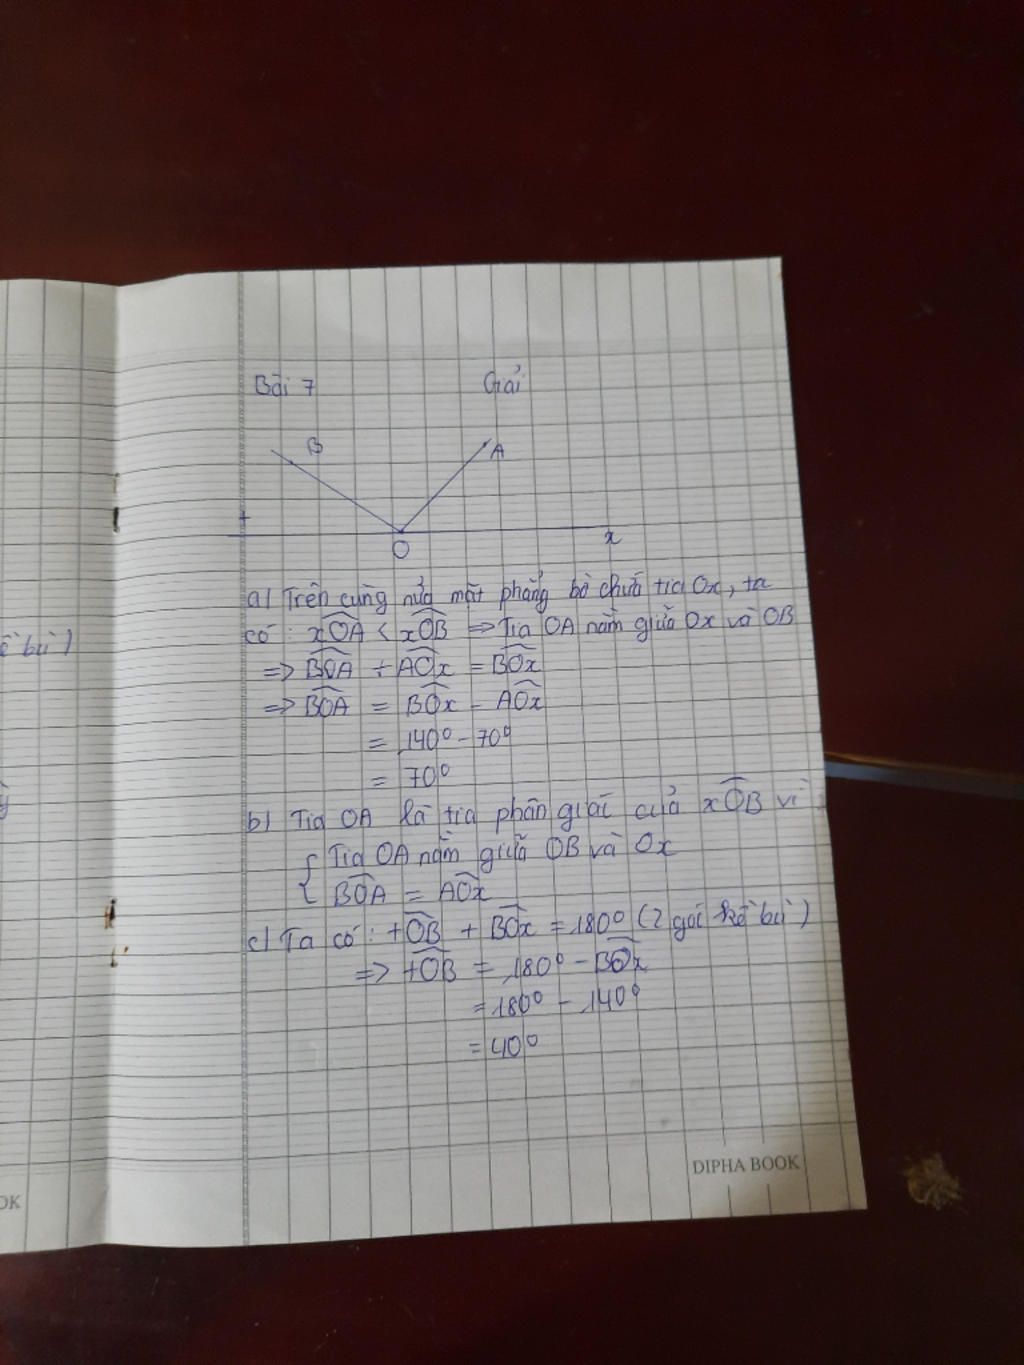 Bài 7 Giải
B A
t
O x
a) Trên cùng nửa mặt phẳng bờ chứa tia Ox, ta
có: xOA < xOB => Tia OA nằm giữa Ox và OB
=> BOA + AOx = BOx
=> BOA = BOx - AOx
= 140° - 70°
= 70°
b) Tia OA là tia phân giác của xOB vì
{ Tia OA nằm giữa OB và Ox
BOA = AOx
c) Ta có: tOB + BOx = 180° (2 góc kề bù)
=> tOB = 180° - BOx
= 180° - 140°
= 40°
ề bù)
DIPHA BOOK
OK